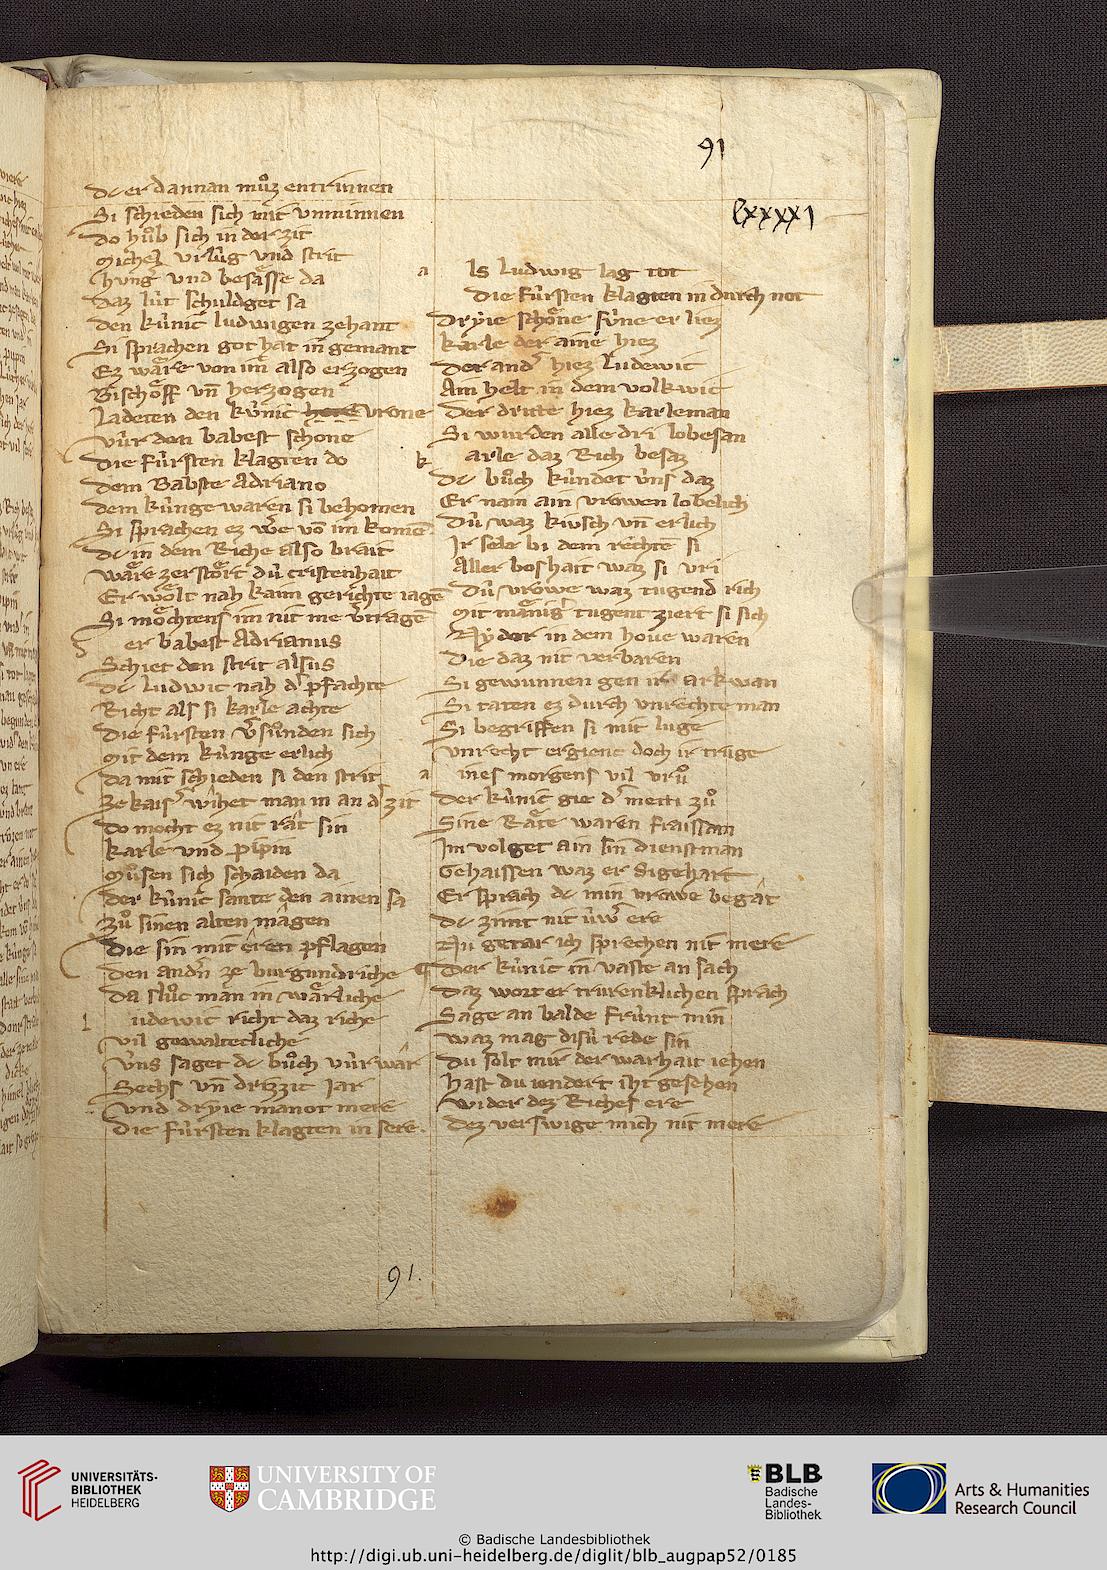 91
lxxxx1
dc er dannan můz entrinnen
Si schieden sich mit vnminnen
do hůb sich in der zit
michel vrlúg vnd strit
hvng vnd besässe da
daz lút schuldget sa
den kúnic ludwigen zehant
Si sprachen got hat in gemant
Ez wäre von im also erzogen
Bischöff vn̄ herzogen
ladeten den kúnic here vrone
vúr den babest schone
die fúrsten klagten do
dem Babste Adriano
dem kúnge waren si behomen
Si sprachen ez w̄e vō im komē
dc in dem Riche also brait
wäre zerstört dú cristenhait
Er wölt nah kaim gerichte iagē
Si möchtens im nit me v̓tragē
S er babest Adrianus
Schiet den strit alsus
dc ludwic nah d̓ pfachte
Richt als si karle achte
die fúrsten v̓sůnden sich
mit dem kúnge erlich
da mit schieden si den strit
ze kais̓ wihet man in an d̓ zit
do mocht ez nit rât sin
karle vnd pipin
můsen sich schaiden da
der kúnic sante den ainen sa
zů sinen alten mâgen
die sin mit êren pflagen
den andn̄ ze burgundriche
da slůc man in wärliche
l udewic richt daz riche
vil gewaltecliche
v́ns saget dc bůch vúr wâr
Sechs vn̄ drizzit Jar
vnd dryie manot mere
die fúrsten klagten in sere.
a ls ludwig lag tot
die fúrsten klagten in durch not
dryie schöne súne er liez
karle der aine hiez
der and̓ hiez ludewic
Am helt in dem volkwic
der dritte hiez karleman
Si wurden alle dri lobesan
k arle daz Rich besaz
dc bůch kúndet úns daz
Er nam ain vrowen lobelich
dú waz kivsch vn̄ erlich
Jr sele bi dem rechtē si
Aller boshait waz si vri
dú vrowe waz tugend rich
mit mänig̓ tugent ziert si sich
Nyder in dem houe waren
die daz nit verbaren
Si gewunnen gen ir arkwan
Si taten ez durch vnrechte man
Si begriffen si mit luge
vnrecht ergienc doch ir trúge
a ines morgens vil vrů
der kúnic gie d̓ metti zů
Sine Räte waren fraissam
Im volget ain sin dienstman
Gehaissen waz er Sigehart
Er sprach dc min vrowe begât
dc zimt nit úw̓ ere
Nu getar ich sprechen nit mere
der kúnic in vaste an sach
daz wort er trurenklichen sprach
Sage an balde frúnt min
waz mag disú rede sin
du solt mir der warhait iehen
hast du iendert iht gesehen
wider dez Riches ere
dez verswige mich nit mere
91.
UNIVERSITÄTS-
BIBLIOTHEK
HEIDELBERG
UNIVERSITY OF
CAMBRIDGE
BLB
Badische
Landes-
Bibliothek
Arts & Humanities
Research Council
© Badische Landesbibliothek
http://digi.ub.uni-heidelberg.de/diglit/blb_augpap52/0185